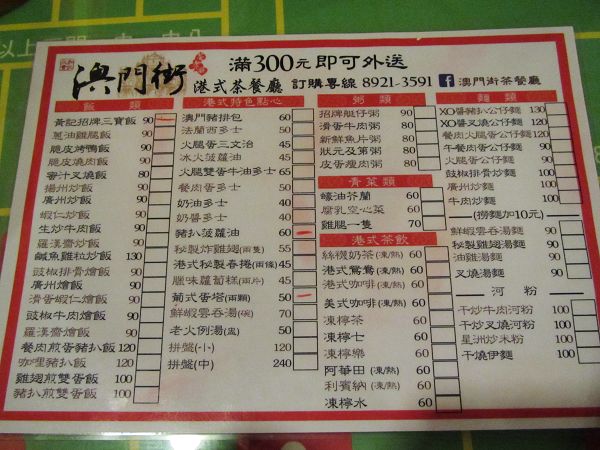 澳門街
滿300元即可外送
港式茶餐廳 訂購專線 8921-3591 f 澳門街茶餐廳
飯類
黃記招牌三寶飯 90
蔥油雞腿飯 90
脆皮烤鴨飯 90
脆皮燒肉飯 90
蜜汁叉燒飯 80
揚州炒飯 90
廣州炒飯 90
蝦仁炒飯 90
生炒牛肉飯 90
羅漢齋炒飯 90
鹹魚雞粒炒飯 130
豉椒排骨燴飯 90
廣州燴飯 90
滑蛋蝦仁燴飯 90
豉椒牛肉燴飯 90
羅漢齋燴飯 90
餐肉煎蛋豬扒飯 120
咖哩豬扒飯 120
雞翅煎雙蛋飯 100
豬扒煎雙蛋飯 100
港式特色點心
澳門豬排包 60
法蘭西多士 50
火腿蛋三文治 45
冰火菠蘿油 45
火腿雙蛋牛油多士 65
餐肉蛋多士 50
奶油多士 40
奶醬多士 40
豬扒菠蘿油 60
秘製炸雞翅(兩隻) 55
港式秘製春捲(兩條) 45
臘味蘿蔔糕(兩片) 45
葡式蛋塔(兩顆) 50
鮮蝦雲吞湯(碗) 60
老火例湯(盅) 50
拼盤(小) 120
拼盤(中) 240
粥類
招牌艇仔粥 90
滑蛋牛肉粥 80
新鮮魚片粥 80
狀元及第粥 80
皮蛋瘦肉粥 80
青菜類
蠔油芥蘭 60
腐乳空心菜 60
雞腿一隻 70
港式茶飲
絲襪奶茶(凍/熱) 60
港式鴛鴦(凍/熱) 60
港式咖啡(凍/熱) 60
美式咖啡(凍/熱) 60
凍檸茶 60
凍檸七 60
凍檸樂 60
阿華田(凍/熱) 60
利賓納(凍/熱) 60
凍檸水 60
麵類
XO醬豬扒公仔麵 130
XO醬叉燒公仔麵 120
餐肉火腿蛋公仔麵 110
午餐肉蛋公仔麵 90
火腿蛋公仔麵 90
豉椒排骨炒麵 100
廣州炒麵 100
牛肉炒麵 100
(撈麵加10元)
鮮蝦雲吞湯麵 90
秘製雞翅湯麵 90
油雞湯麵 90
叉燒湯麵 90
河粉
干炒牛肉河粉 100
干炒叉燒河粉 100
星洲炒米粉 100
干燒伊麵 100